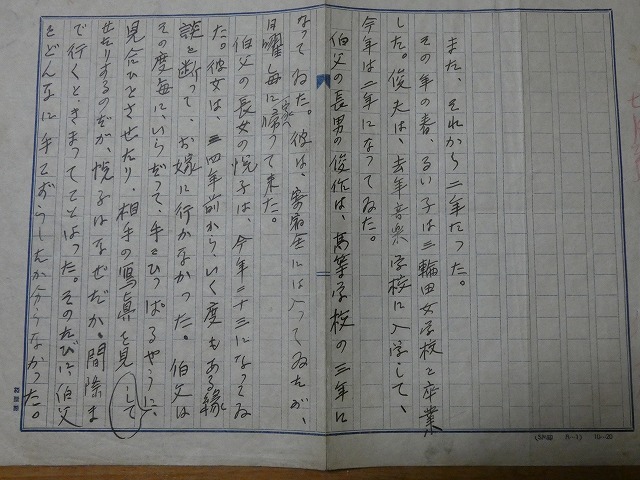 また、それから二年たった。
その年の春、るい子は三輪田女学校を卒業
した。俊夫は、去年音楽学校に入学して、
今年は二年になってゐた。
伯父の長男の俊作は、高等学校の三年に
なってゐた。彼は、寄宿舎には入ってゐたが、
日曜毎に家へ帰って来た。
伯父の長女の悦子は、今年二十三になってゐ
た。彼女は、三四年前から、いく度もある縁
談を断って、お嫁に行かなかった。伯父は
その度毎に、いらだって、手をひっぱるやうに、
見合ひをさせたり、相手の写眞を見して
せたりするのだが、悦子はなぜだか。間際ま
で行くと、きまってことはった。そのたびに伯父
をどんなに手こずらしたか分らなかった。
(SM印 A-1) 10-20